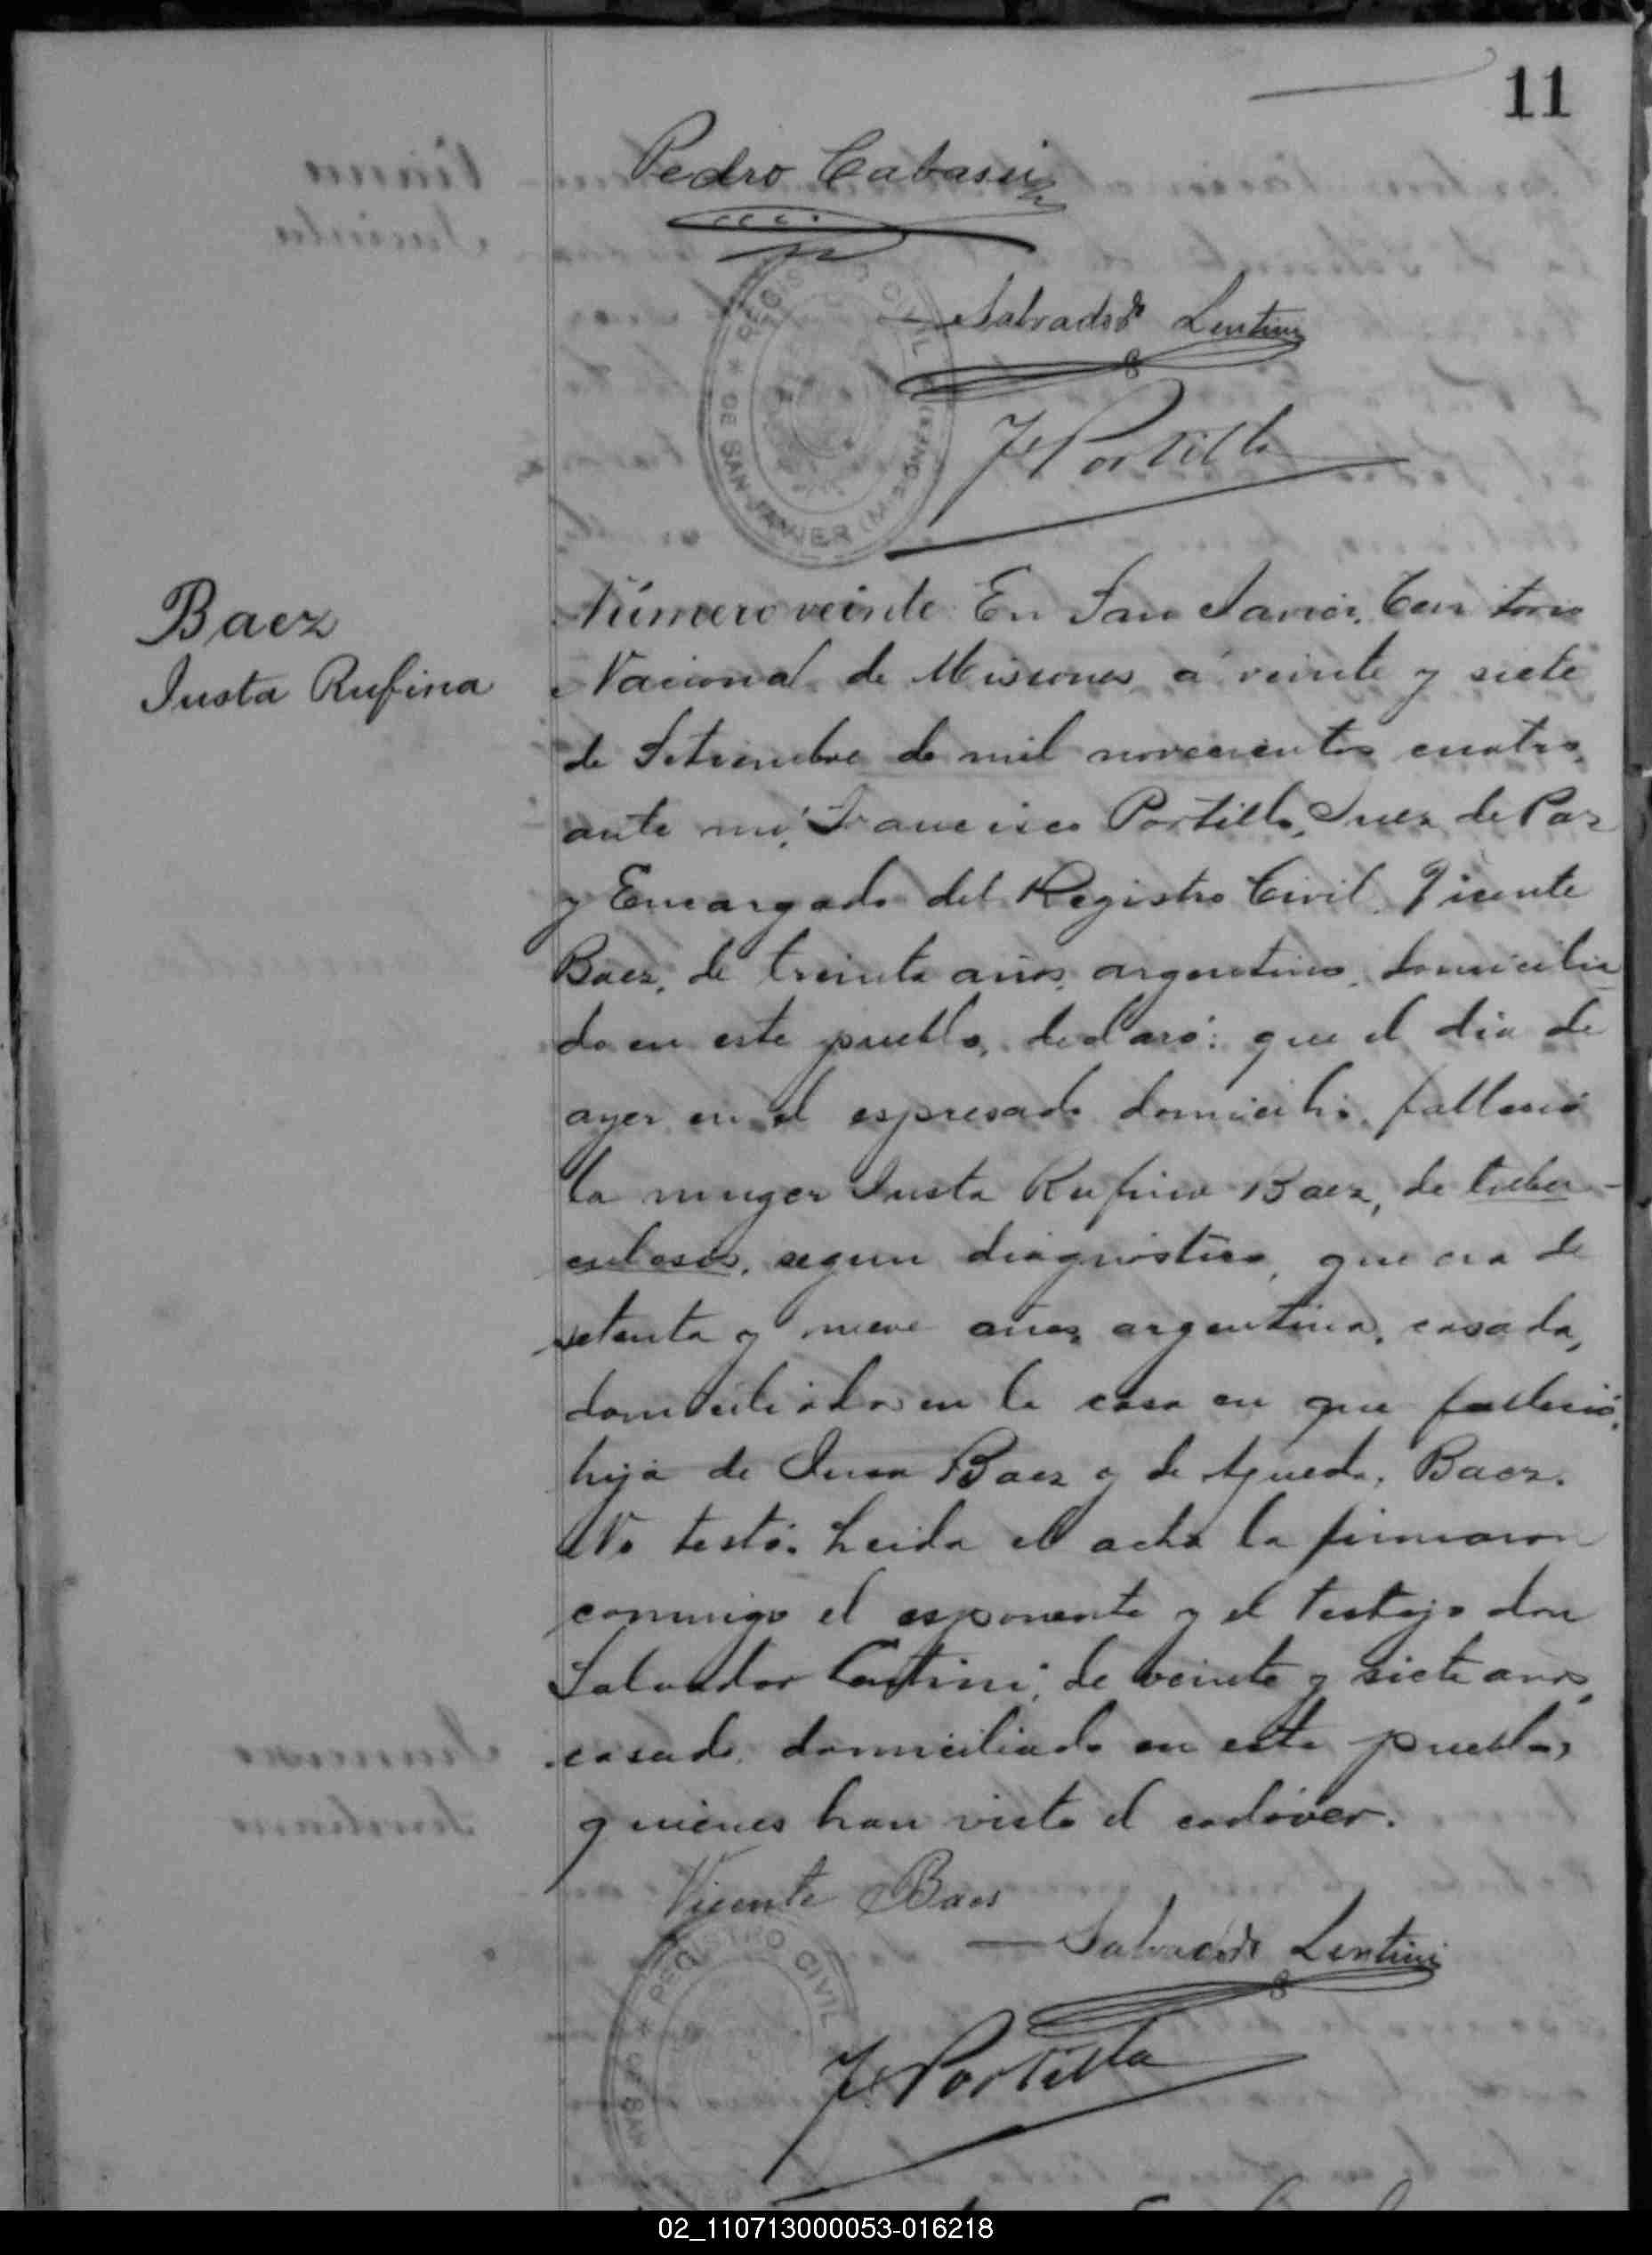 11
Pedro Cabasin
Salvador Lentini
F Portillo
REGISTRO CIVIL
DE SAN JAVIER (MISIONES)
Baez
Justa Rufina
Número veinte. En San Javier, Territorio
Nacional de Misiones a veinte y siete
de Setiembre de mil novecientos cuatro,
ante mi, Francisco Portillo, Juez de Paz
y Encargado del Registro Civil, Vicente
Baez, de treinta años, argentino, domicilia
do en este pueblo, declaró: que el dia de
ayer en el espresado domicilio, falleció
la muger Justa Rufina Baez, de tuber-
culosis, segun diagnóstico, que era de
setenta y nueve años, argentina, casada,
domiciliada en la casa en que falleció,
hija de Juan Baez y de Agueda Baez.
No testó. Leida el acta la firmaron
conmigo el esponente y el testigo don
Salvador Lentini, de veinte y siete años,
casado, domiciliado en este pueblo,
quienes han visto el cadáver.
Vicente Baes
Salvador Lentini
F Portillo
REGISTRO CIVIL
DE SAN
02_110713000053-016218